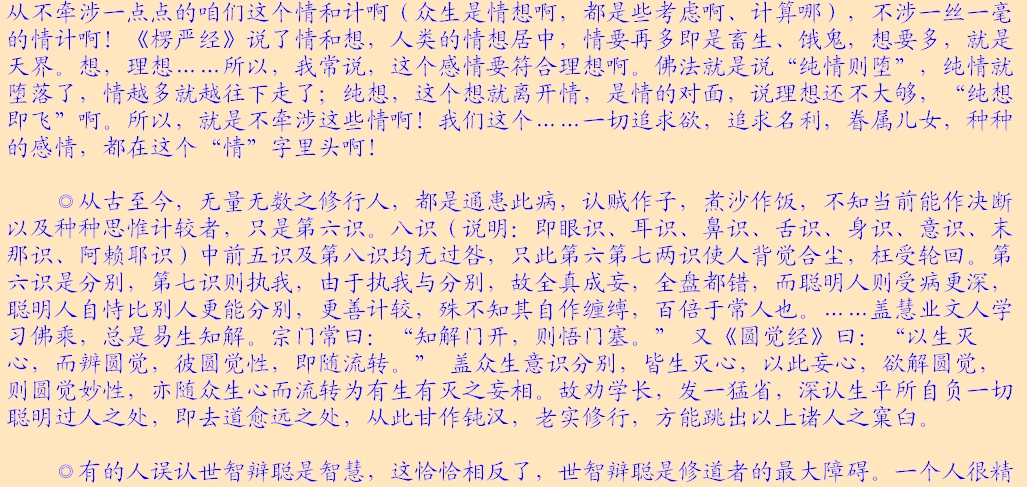 从不牵涉一点点的咱们这个情和计啊（众生是情想啊，都是些考虑啊、计算哪），不涉一丝一毫
的情计啊！《楞严经》说了情和想，人类的情想居中，情要再多即是畜生、饿鬼，想要多，就是
天界。想，理想……所以，我常说，这个感情要符合理想啊。佛法就是说“纯情则堕”，纯情就
堕落了，情越多就越往下走了；纯想，这个想就离开情，是情的对面，说理想还不大够，“纯想
即飞”啊。所以，就是不牵涉这些情啊！我们这个……一切追求欲，追求名利，眷属儿女，种种
的感情，都在这个“情”字里头啊！
◎从古至今，无量无数之修行人，都是通患此病，认贼作子，煮沙作饭，不知当前能作决断
以及种种思惟计较者，只是第六识。八识（说明：即眼识、耳识、鼻识、舌识、身识、意识、末
那识、阿赖耶识）中前五识及第八识均无过咎，只此第六第七两识使人背觉合尘，枉受轮回。第
六识是分别，第七识则执我，由于执我与分别，故全真成妄，全盘都错，而聪明人则受病更深，
聪明人自恃比别人更能分别，更善计较，殊不知其自作缠缚，百倍于常人也。……盖慧业文人学
习佛乘，总是易生知解。宗门常曰：“知解门开，则悟门塞。” 又《圆觉经》曰：“以生灭
心，而辨圆觉，彼圆觉性，即随流转。” 盖众生意识分别，皆生灭心，以此妄心，欲解圆觉，
则圆觉妙性，亦随众生心而流转为有生有灭之妄相。故劝学长，发一猛省，深认生平所自负一切
聪明过人之处，即去道愈远之处，从此甘作钝汉，老实修行，方能跳出以上诸人之窠臼。
◎有的人误认世智辩聪是智慧，这恰恰相反了，世智辩聪是修道者的最大障碍。一个人很精